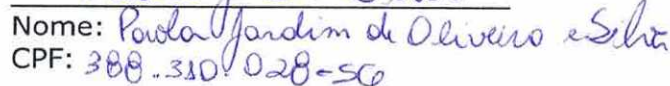 Nome: Paola Jardim de Oliveira e Silva
CPF: 388.310.028-56